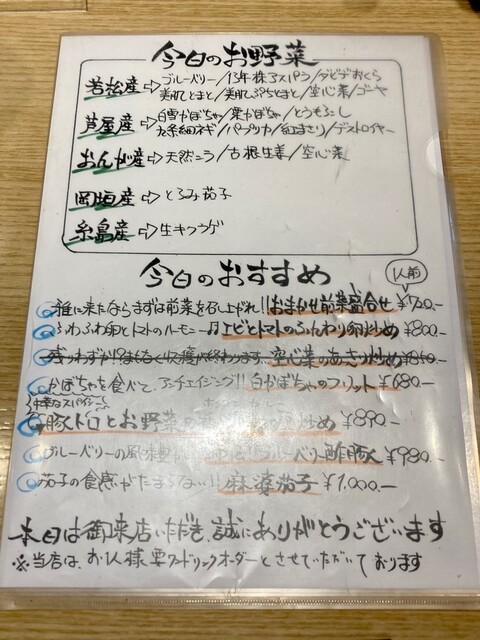 今日のお野菜
若松産⇨ブルーベリー/13年株アスパラ/ダビデおくら
美肌とまと/美肌ぷちとまと/空心菜/ゴーヤ
芦屋産⇨白雪かぼちゃ/栗かぼちゃ/とうもろこし
九条細ネギ/パプリカ/紅まさり/デストロイヤー
おんが産⇨天然ニラ/古根生姜/空心菜
岡垣産⇨とろみ茄子
糸島産⇨生キクラゲ
今日のおすすめ
1人前
雅に来たならまずは前菜を召し上がれ!!おまかせ前菜盛合せ
ふわふわ卵とトマトのルーモニー♫エビとトマトのふんわり卵炒め¥800ー
残りわずか!?まもなく収穫が終わります…空心菜のあっさり炒め
かぼちゃを食べてアンチエイジング!!白かぼちゃのフリット¥680ー
豚トロとお野菜の 炒め¥890ー
ブルーベリーの風味 ブルーベリー酢豚¥980ー
茄子の食感がたまらない!!麻婆茄子¥1,000ー
本日は御来店いただき、誠にありがとうございます
※当店は、お1人様要ワンドリンクオーダーとさせていただいております